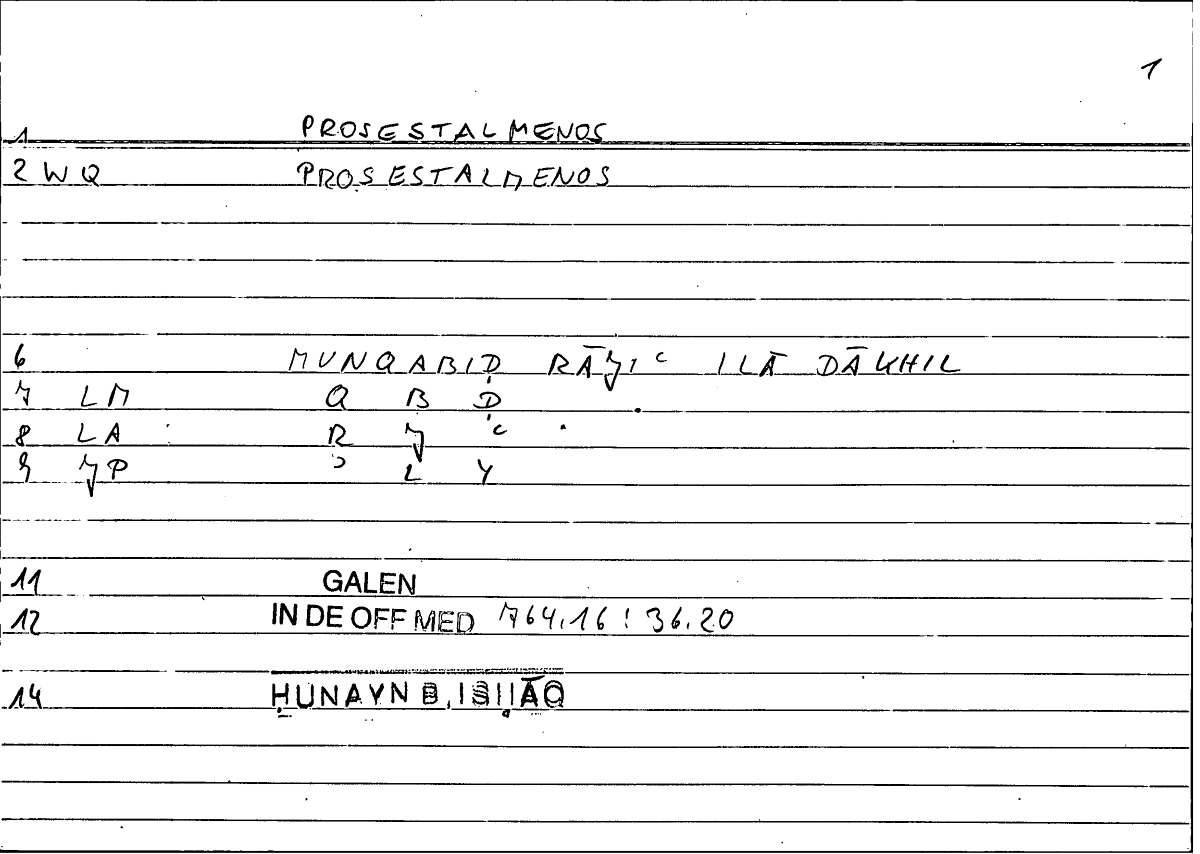 1
1 PROSESTALMENOS
2 WQ PROSESTALMENOS
6 MUNQABIḌ RĀJIʿ ILĀ DĀKHIL
7 LM Q B Ḍ
8 LA R J ʿ
9 JP ʾ L Y
11 GALEN
12 IN DE OFF MED 764.16 : 36.20
14 ḤUNAYN B. ISḤĀQ